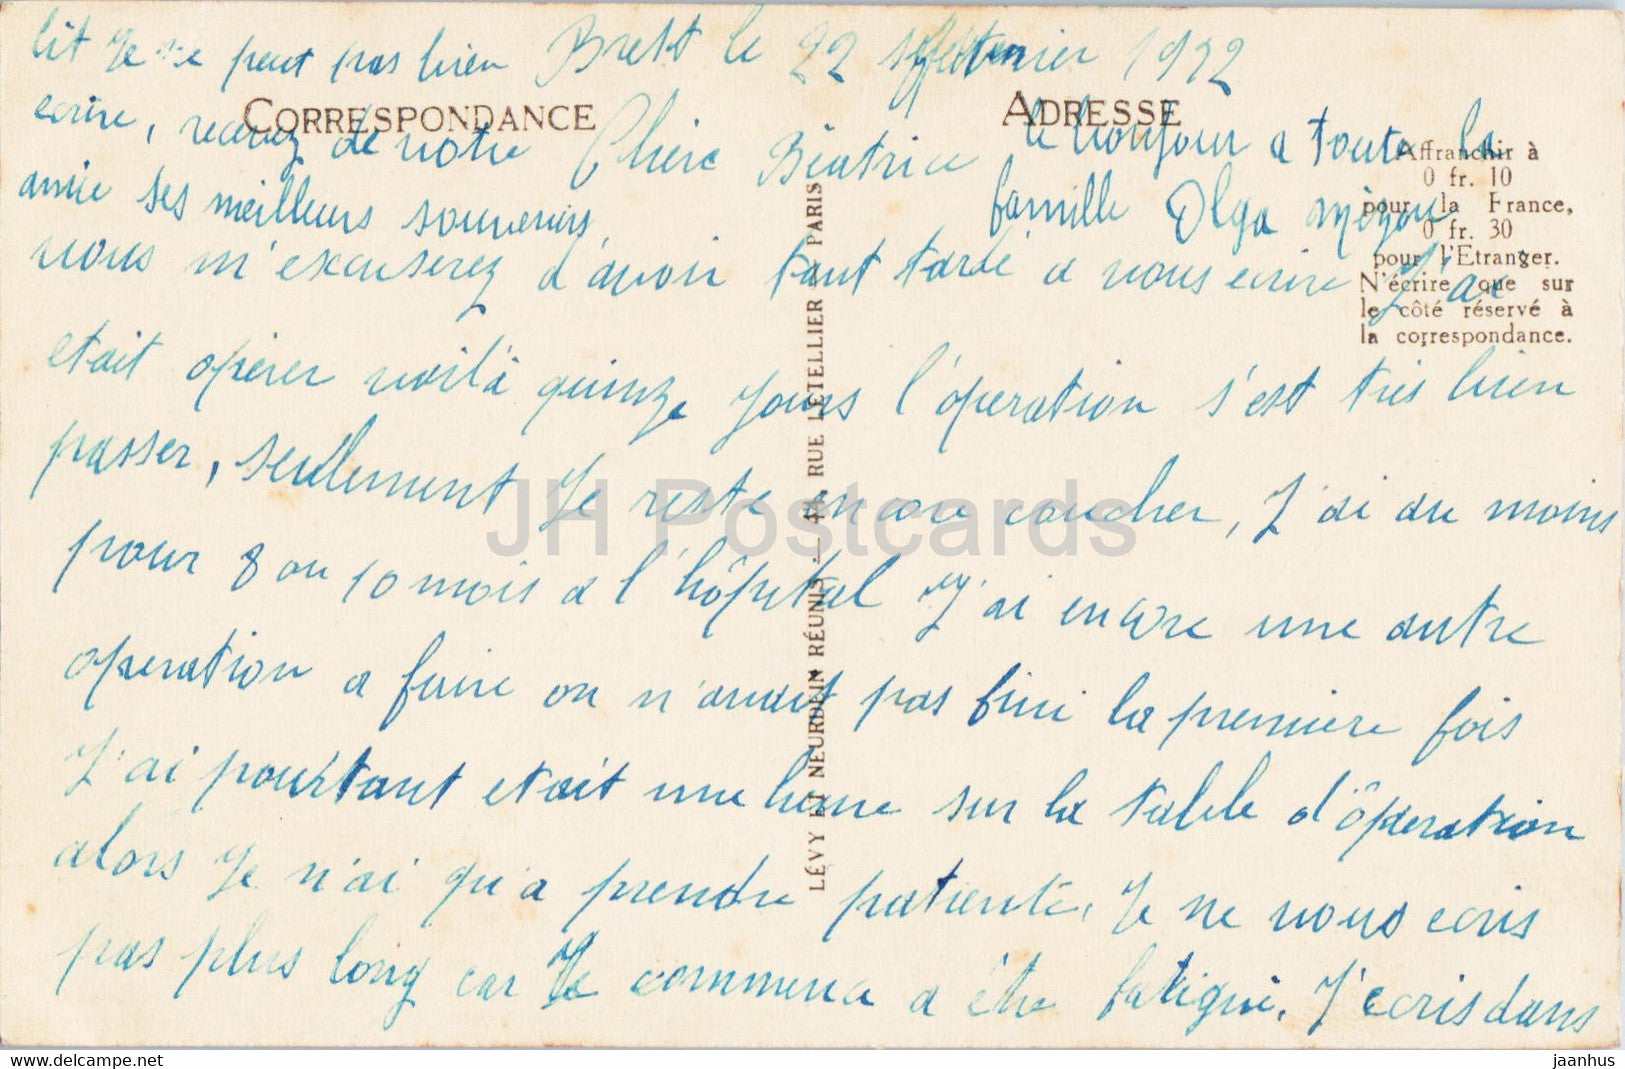 Brest le 22 septembre 1922
CORRESPONDANCE
ADRESSE
Chère Béatrice
vous m'excuserez d'avoir tant tardé a vous ecrire J'ai
etait opérer voilà quinze Jours l'operation s'est très bien
passer, seulement Je reste encore coucher, J'ai au moins
pour 8 ou 10 mois a l'hôpital J'ai encore une autre
operation a faire on n'avait pas fini la première fois
J'ai pourtant etait une heure sur la table d'ôperation
alors Je n'ai qu'a prendre patiente, Je ne vous ecris
pas plus long car Je commence a être fatigué, J'ecris dans
lit Je ne peut pas bien
ecrire, recevez de votre
amie ses meilleurs souvenirs
le bonjour a toute la
famille Olga
Affranchir à
0 fr. 10
pour la France,
0 fr. 30
pour l'Etranger.
N'écrire que sur
le côté réservé à
la correspondance.
LÉVY ET NEURDEIN RÉUNIS — 44, RUE LETELLIER PARIS
JH Postcards
delcampe.net
jaanhus